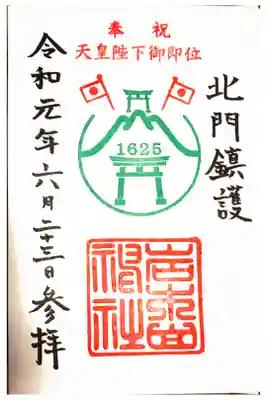 奉祝
天皇陛下御即位
北門鎮護
1625
岩木山神社
令和元年六月二十三日参拝